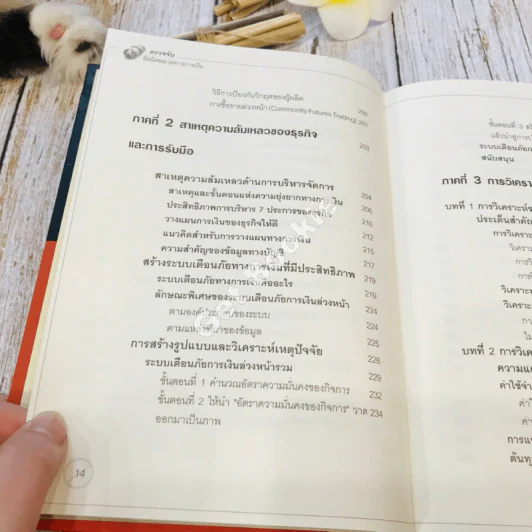 ตรวจจับ
สัมผัสพลาดทางการเงิน
วิธีการป้องกันวิกฤตของผู้ผลิต 200
การซื้อขายล่วงหน้า (Commodity Futures Trading) 201
ภาคที่ 2 สาเหตุความล้มเหลวของธุรกิจ 203
และการรับมือ
สาเหตุความล้มเหลวด้านการบริหารจัดการ 204
สาเหตุและขั้นตอนแห่งความยุ่งยากทางการเงิน 206
ประสิทธิภาพการบริหาร 7 ประการของธุรกิจ 210
วางแผนการเงินของธุรกิจให้ดี 212
แนวคิดสำหรับการวางแผนทางการเงิน 215
ความสำคัญของข้อมูลทางบัญชี 217
สร้างระบบเตือนภัยทางการเงินที่มีประสิทธิภาพ 219
ระบบเตือนภัยทางการเงินคืออะไร 219
ลักษณะพิเศษของระบบเตือนภัยการเงินล่วงหน้า 224
ตามองค์ประกอบของระบบ 224
ตามแหล่งที่มาของข้อมูล 225
การสร้างรูปแบบและวิเคราะห์เหตุปัจจัย 228
ระบบเตือนภัยการเงินล่วงหน้ารวม 229
ขั้นตอนที่ 1 คำนวณอัตราความมั่นคงของกิจการ 232
ขั้นตอนที่ 2 ให้นำ "อัตราความมั่นคงของกิจการ" วาด 234
ออกมาเป็นภาพ
14
Get Bookie
ขั้นตอนที่ 3 สร้
แล้วนำสู่การเ
ระบบเตือนภัยก
สนับสนุน
ภาคที่ 3 การวิเครา
บทที่ 1 การวิเคราะห์ร
ประเด็นสำคัญ
การวิเคราะห์
วิเคราะ
การวิ
การวิ
วิเคราะห์
วิเครา
กา
ไม
บทที่ 2 การวิเค
ความแ
ค่าใช้จ่า
ค่าใ
ค่า
การแ
ต้นทุ